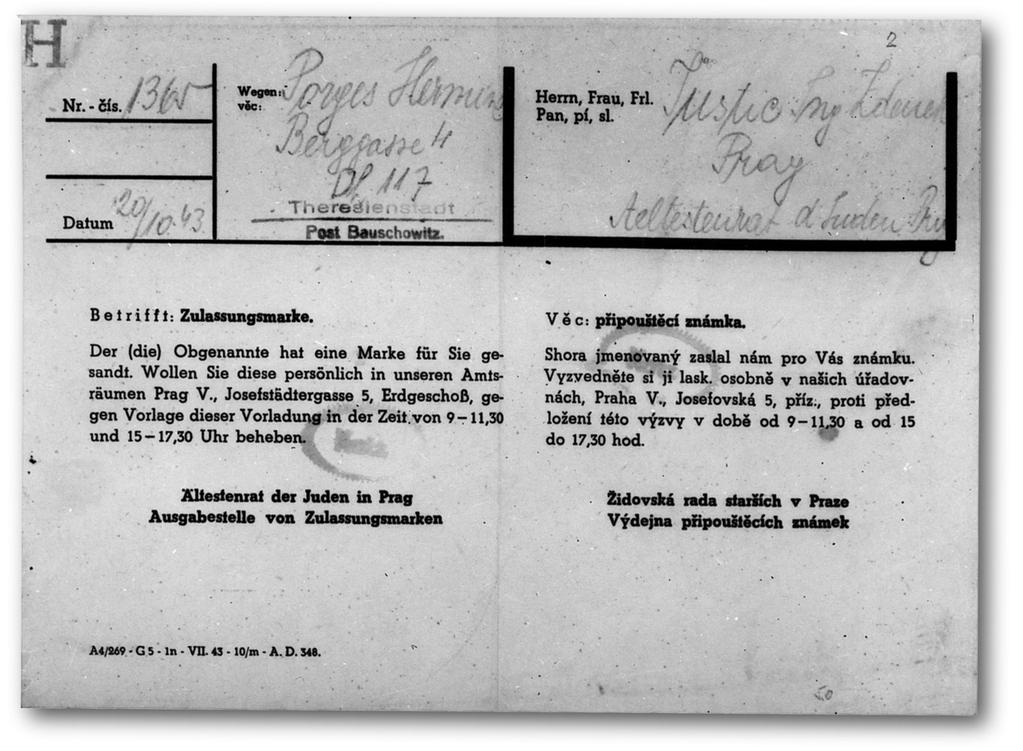 H
2
Nr. - čís. 1365
Datum 20/10.43.
Wegen:
věc:
Porges Hermine
Berggasse 4
Df. 117
Theresienstadt
Post Bauschowitz.
Herrn, Frau, Frl.
Pan, pí, sl.
Justic Ing Zdenek
Prag
Aeltestenrat d Juden Prag
Betrifft: Zulassungsmarke.
Der (die) Obgenannte hat eine Marke für Sie ge-
sandt. Wollen Sie diese persönlich in unseren Amts-
räumen Prag V., Josefstädtergasse 5, Erdgeschoß, ge-
gen Vorlage dieser Vorladung in der Zeit von 9–11,30
und 15–17,30 Uhr beheben.
Ältestenrat der Juden in Prag
Ausgabestelle von Zulassungsmarken
Věc: připouštěcí známka.
Shora jmenovaný zaslal nám pro Vás známku.
Vyzvedněte si ji lask. osobně v našich úřadov-
nách, Praha V., Josefovská 5, příz., proti před-
ložení této výzvy v době od 9–11,30 a od 15
do 17,30 hod.
Židovská rada starších v Praze
Výdejna připouštěcích známek
A4/269 - G 5 - 1n - VII. 43 - 10/m - A. D. 348.
50